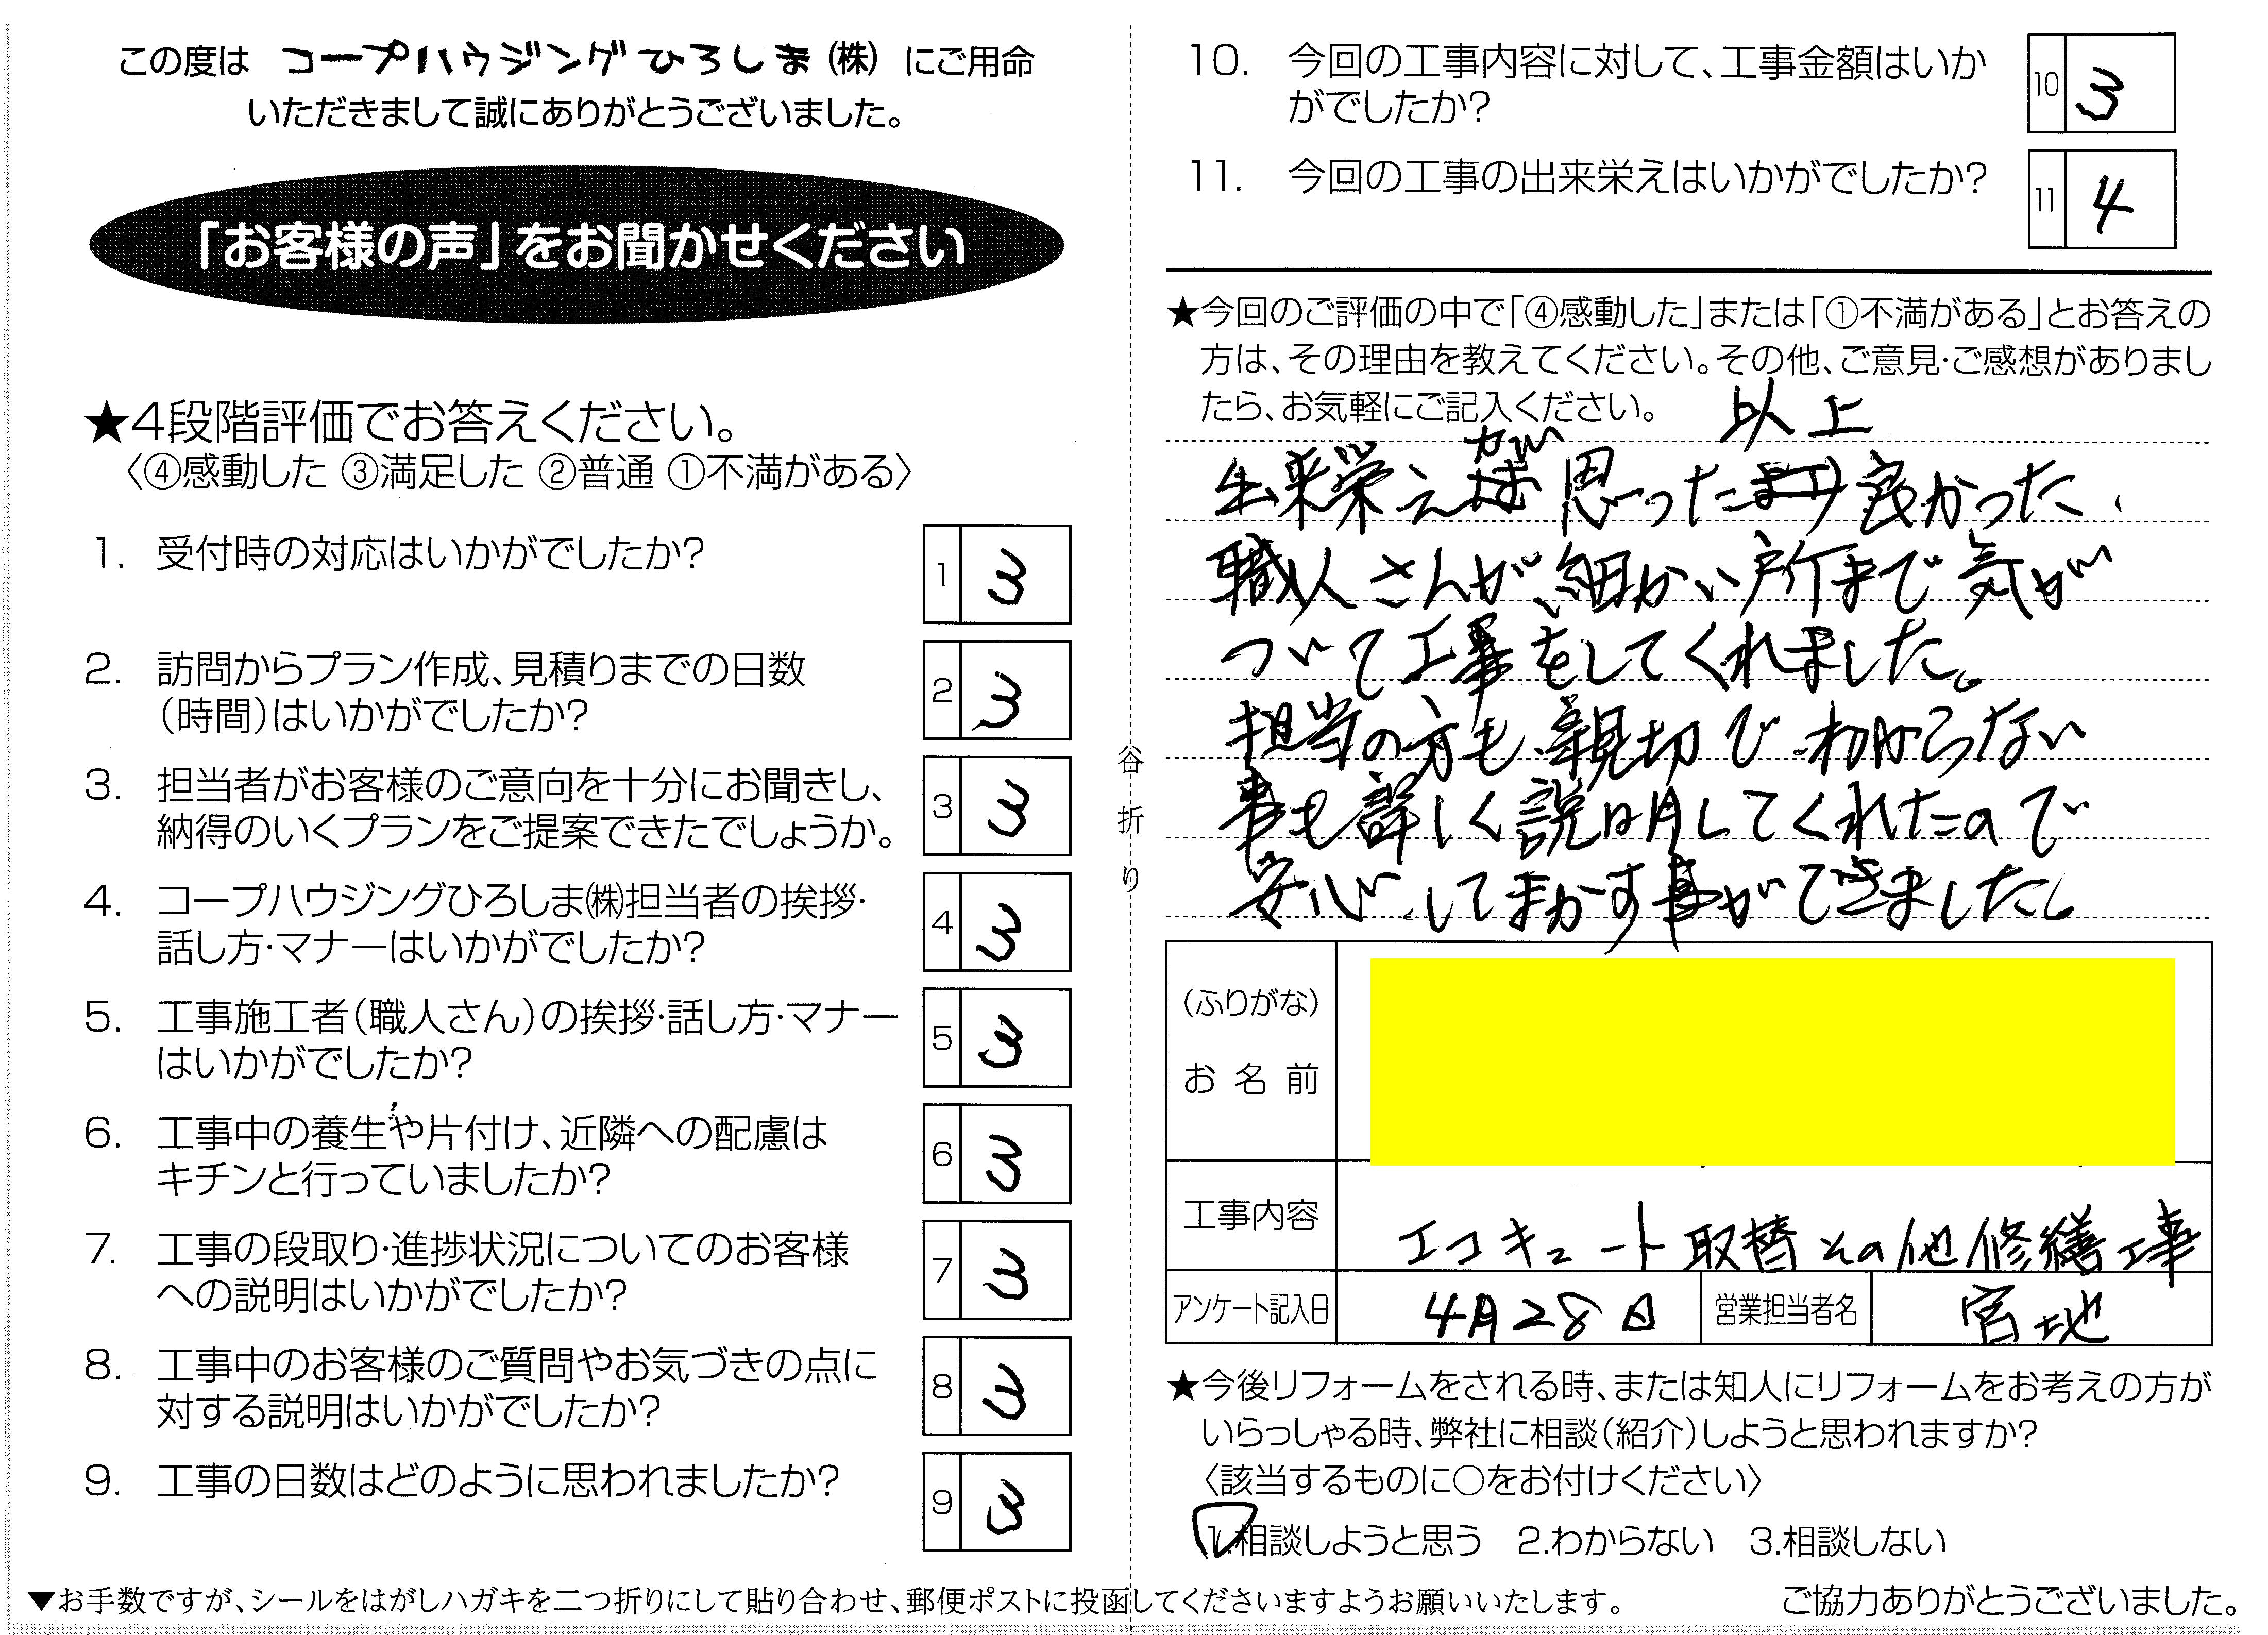 この度は コープハウジングひろしま(株) にご用命
いただきまして誠にありがとうございました。
「お客様の声」をお聞かせください
★4段階評価でお答えください。
〈④感動した ③満足した ②普通 ①不満がある〉
1. 受付時の対応はいかがでしたか?
1 3
2. 訪問からプラン作成、見積りまでの日数
(時間)はいかがでしたか?
2 3
3. 担当者がお客様のご意向を十分にお聞きし、
納得のいくプランをご提案できたでしょうか。
3 3
4. コープハウジングひろしま㈱担当者の挨拶・
話し方・マナーはいかがでしたか?
4 3
5. 工事施工者(職人さん)の挨拶・話し方・マナー
はいかがでしたか?
5 3
6. 工事中の養生や片付け、近隣への配慮は
キチンと行っていましたか?
6 3
7. 工事の段取り・進捗状況についてのお客様
への説明はいかがでしたか?
7 3
8. 工事中のお客様のご質問やお気づきの点に
対する説明はいかがでしたか?
8 3
9. 工事の日数はどのように思われましたか?
9 3
谷折り
10. 今回の工事内容に対して、工事金額はいか
がでしたか?
10 3
11. 今回の工事の出来栄えはいかがでしたか?
11 4
★今回のご評価の中で「④感動した」または「①不満がある」とお答えの
方は、その理由を教えてください。その他、ご意見・ご感想がありまし
たら、お気軽にご記入ください。
出来栄えが思った以上良かった、
職人さんが、細かい所まで気が
ついて工事をしてくれました。
担当の方も、親切で、わからない
事も詳しく説明してくれたので
安心してまかす事ができました。
(ふりがな)
お名前
工事内容 エコキュート取替その他修繕工事
アンケート記入日 4月28日 営業担当者名 宮地
★今後リフォームをされる時、または知人にリフォームをお考えの方が
いらっしゃる時、弊社に相談(紹介)しようと思われますか?
〈該当するものに○をお付けください〉
1.相談しようと思う 2.わからない 3.相談しない
▼お手数ですが、シールをはがしハガキを二つ折りにして貼り合わせ、郵便ポストに投函してくださいますようお願いいたします。
ご協力ありがとうございました。